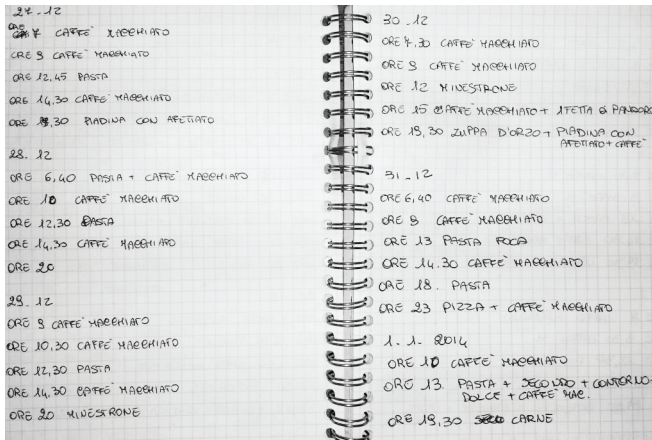 27-12
ORE 7 CAFFE' MACCHIATO
ORE 9 CAFFE' MACCHIATO
ORE 12,45 PASTA
ORE 14,30 CAFFE' MACCHIATO
ORE 19,30 PIADINA CON AFFETTATO
28-12
ORE 6,40 PASTA + CAFFE' MACCHIATO
ORE 10 CAFFE' MACCHIATO
ORE 12,30 PASTA
ORE 14,30 CAFFE' MACCHIATO
ORE 20
29-12
ORE 9 CAFFE' MACCHIATO
ORE 10,30 CAFFE' MACCHIATO
ORE 12,30 PASTA
ORE 14,30 CAFFE' MACCHIATO
ORE 20 MINESTRONE
30-12
ORE 7,30 CAFFE' MACCHIATO
ORE 9 CAFFE' MACCHIATO
ORE 12 MINESTRONE
ORE 15 CAFFE' MACCHIATO + 1 FETTA DI PANDORO
ORE 19,30 ZUPPA D'ORZO + PIADINA CON
AFFETTATO + CAFFE'
31-12
ORE 6,40 CAFFE' MACCHIATO
ORE 9 CAFFE' MACCHIATO
ORE 13 PASTA POCA
ORE 14.30 CAFFE' MACCHIATO
ORE 18. PASTA
ORE 23 PIZZA + CAFFE' MACCHIATO
1-1-2014
ORE 10 CAFFE' MACCHIATO
ORE 13. PASTA + SECONDO + CONTORNO
DOLCE + CAFFE' MAC.
ORE 19,30 CARNE